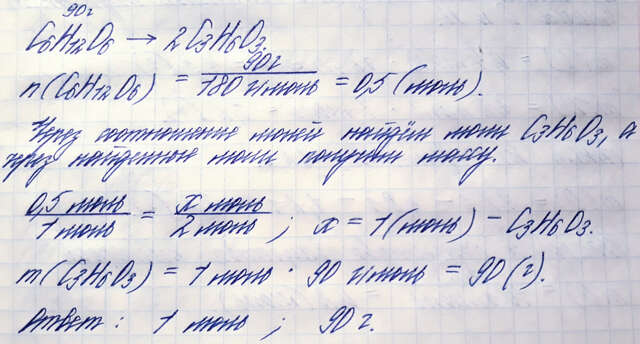 90г
C6H12O6 → 2C3H6O3.
n(C6H12O6) = 90г / 180 г/моль = 0,5 (моль).
Через соотношение молей найдём моли C3H6O3, а
через найденные моли получим массу.
0,5 моль / 1 моль = x моль / 2 моль ; x = 1(моль) – C3H6O3.
m(C3H6O3) = 1 моль · 90 г/моль = 90(г).
Ответ: 1 моль ; 90 г.